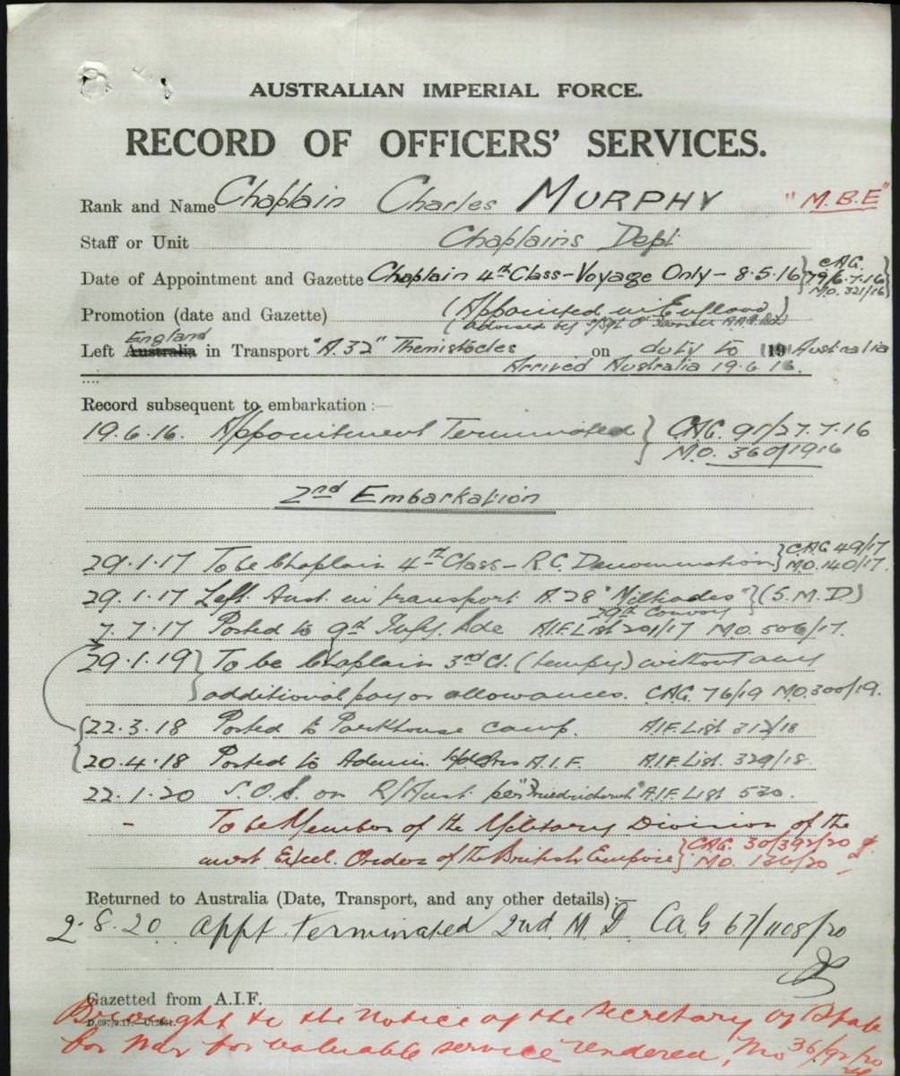 AUSTRALIAN IMPERIAL FORCE.
RECORD OF OFFICERS' SERVICES.
Rank and Name Chaplain Charles MURPHY "M.B.E"
Staff or Unit Chaplains Dept
Date of Appointment and Gazette Chaplain 4th Class - Voyage Only - 8.5.16 } C.A.G.
79/6.7.16
M.O. 321/16
Promotion (date and Gazette) (Appointed in England)
(advised by
England
Left Australia in Transport "A.32" Themistocles on duty to 19 Australia
Arrived Australia 19.6.16.
Record subsequent to embarkation :—
19.6.16. Appointment Terminated } CAG. 91/27.7.16
M.O. 360/1916
2nd Embarkation
29.1.17 To be Chaplain 4th Class - R.C. Denomination } C.A.G 49/17
M.O. 140/17.
29.1.17 Left Aust. in transport A.28 "Miltiades" } (S.M.D)
29th Convoy
7.7.17 Posted to 9th Inf. Bde A.I.F. List 201/17 M.O. 506/17.
29.1.19 } To be Chaplain 3rd Cl. (tempy) without any
additional pay or allowances. CAG. 76/19 M.O. 300/19.
22.3.18 Posted to Parkhouse Camp. A.I.F. List 312/18
20.4.18 Posted to Admin Hdqrs A.I.F. A.I.F. List. 329/18.
22.1.20 S.O.S. on R/Aust. per "Friedrichsruh" A.I.F. List 530.
- To be Member of the Military Division of the
most Excel. Order of the British Empire } CAG. 30/392/20
M.O. 136/20
Returned to Australia (Date, Transport, and any other details):—
2.8.20 Appt terminated 2nd M.D. CAG 67/1108/20
Gazetted from A.I.F.
Brought to the notice of the Secretary of State
for War for valuable service rendered, Mo 36/92/20